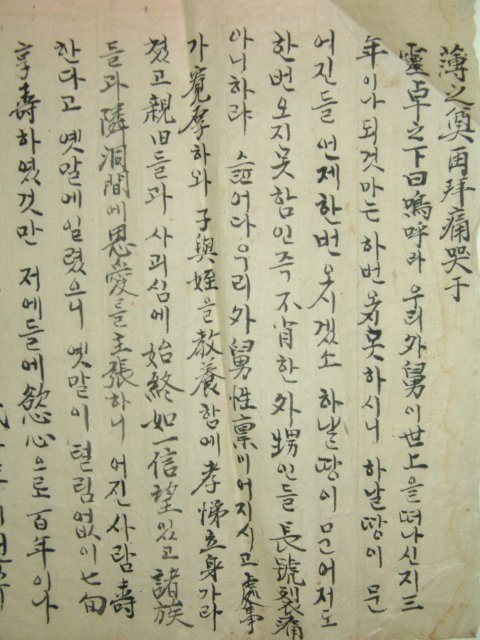 薄之奠再拜痛哭于
靈卓之下曰嗚呼라 우리外舅이世上을떠나신지三
年이나 되것마는 하번 오지못하시니 하날땅이 문
어진들 언제한번 오시겟소 하날땅이 문어저도
한번 오지못함인즉 不肖한 外甥인들 長號裂痛
아니하랴 슯어다우리外舅性稟이어지시고 處事
가 寬厚하와 子與姪을敎養함에 孝悌立身가라
첫고親旧들과 사괴심에 始終如一信望있고 諸族
들과 隣洞間에恩愛를主張하니 어진사람 壽
한다고 옛말에일럿으니 옛말이 털림없이七旬
享壽하엿것만 저에들에慾心으로 百年이나